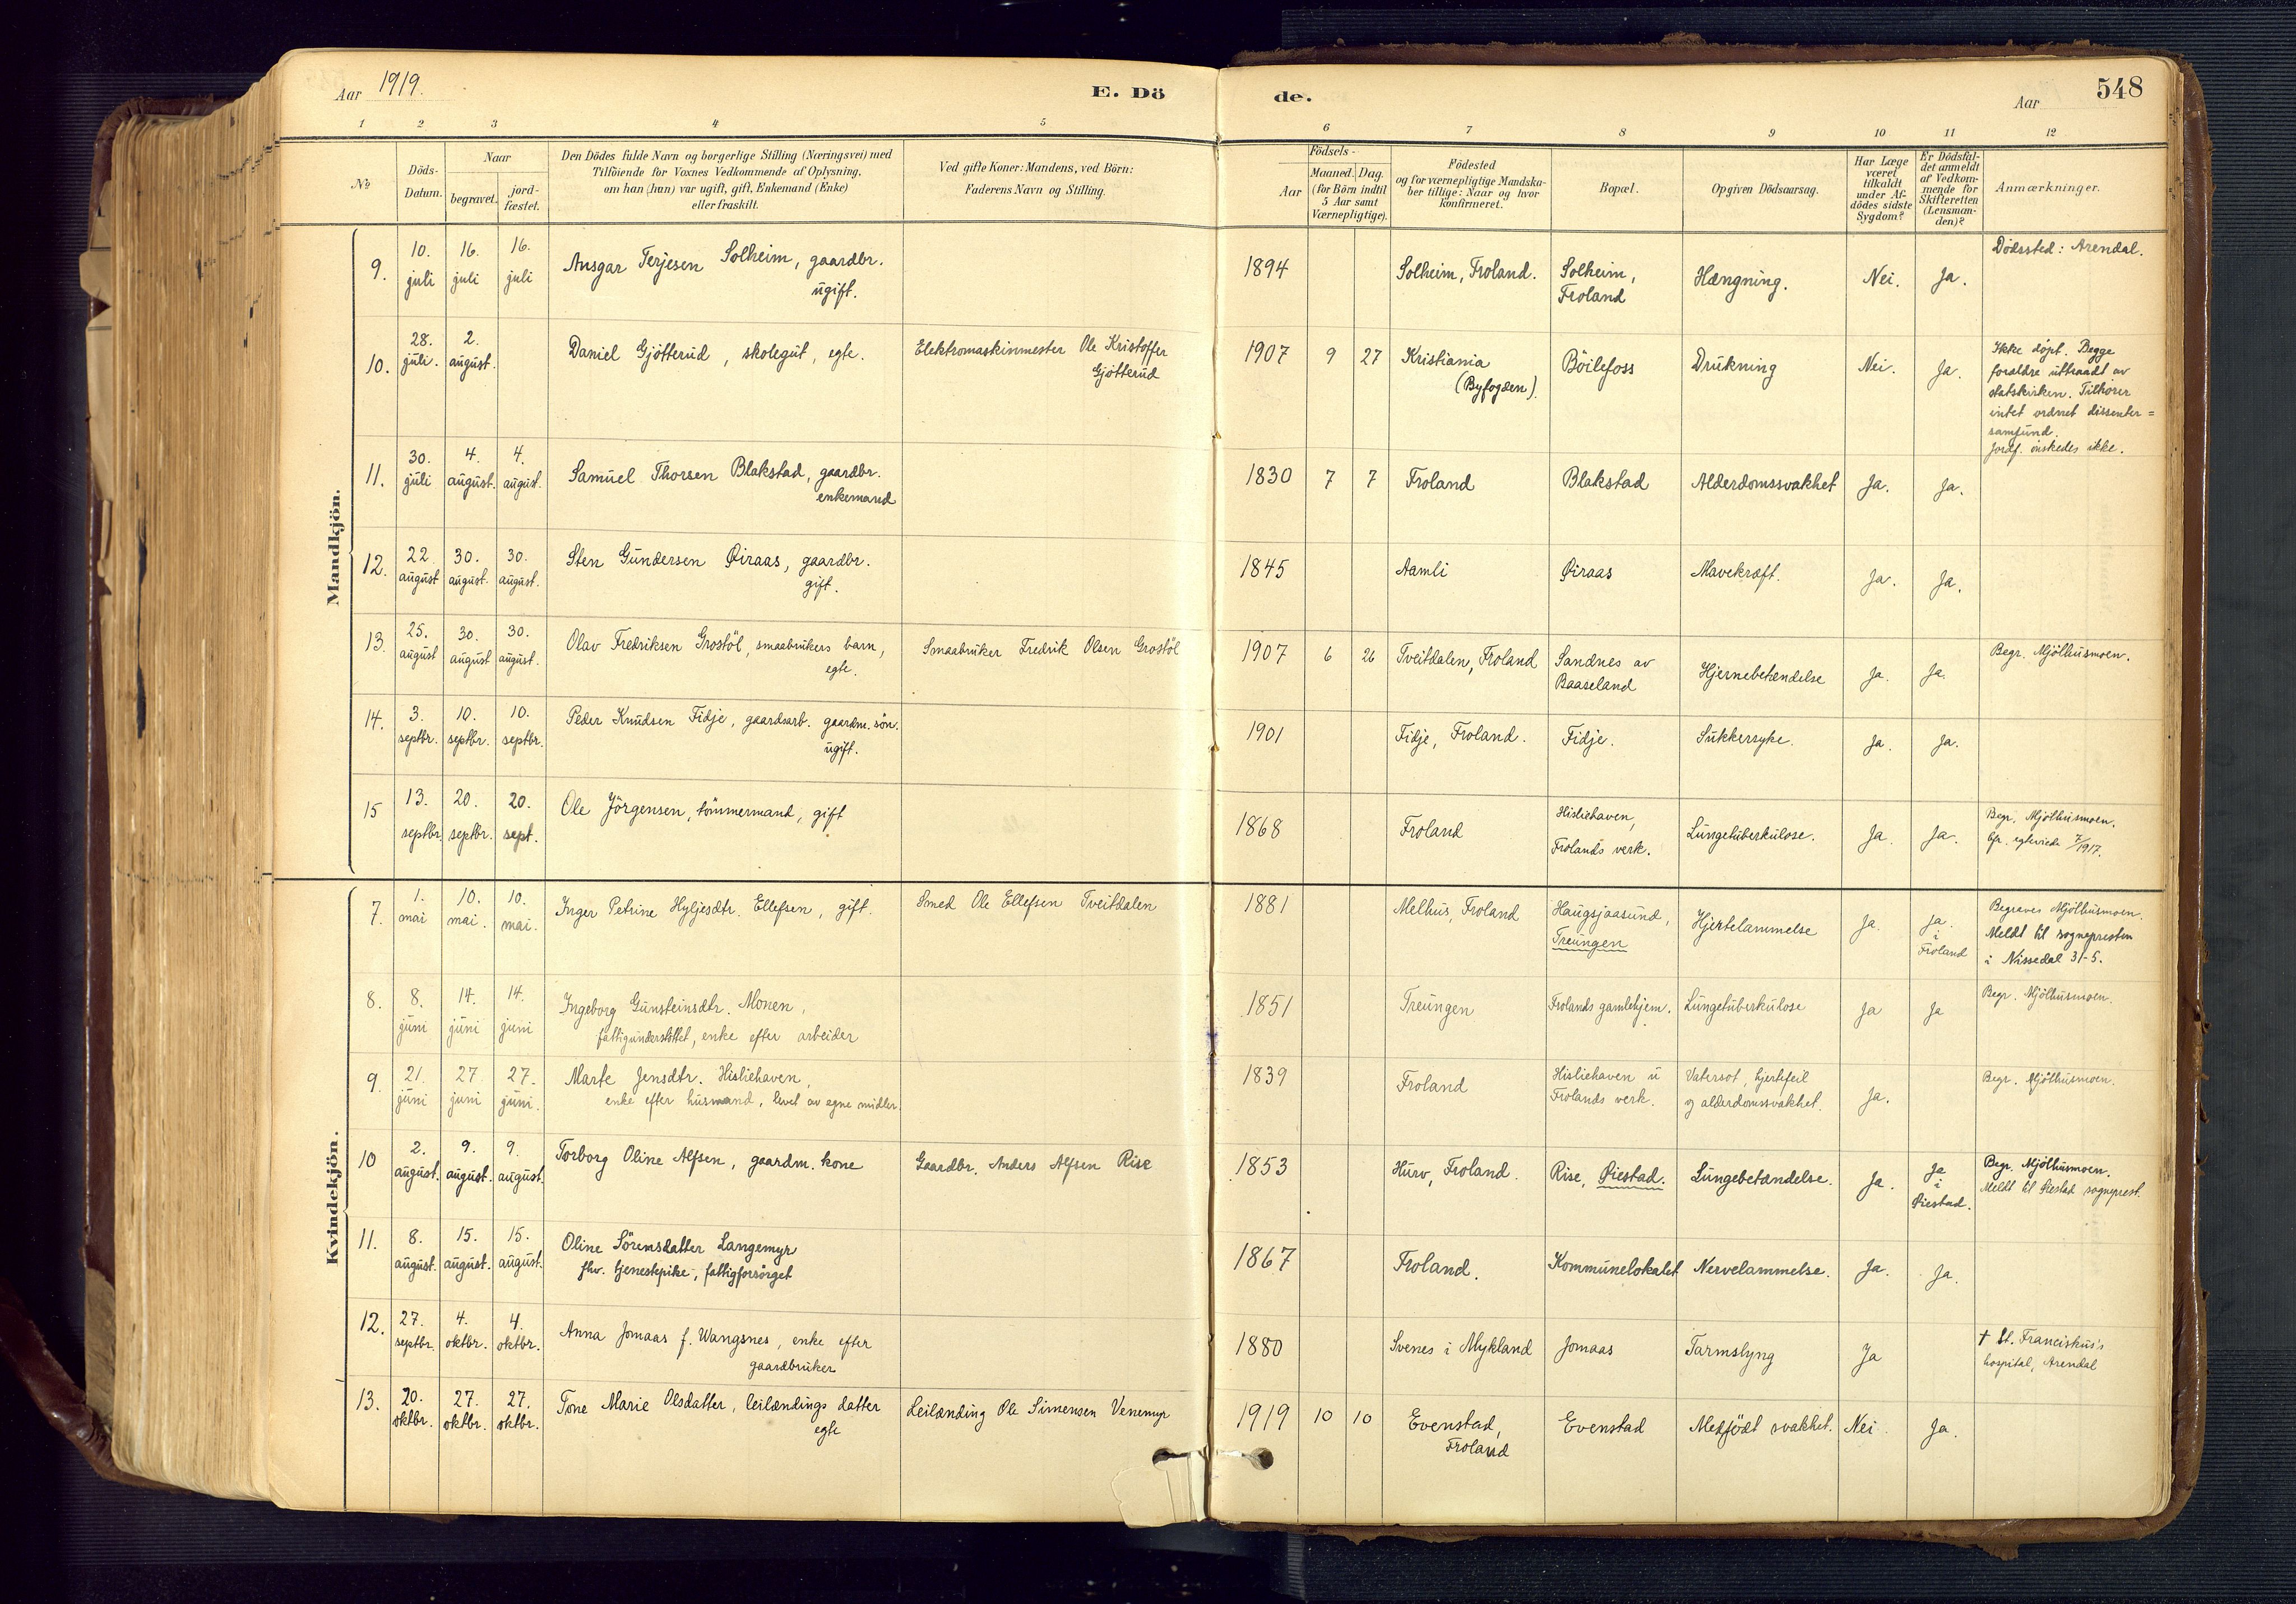 Aar 1919.
E. Dö de.
Aar
548
1 2 3 4 5 6 7 8 9 10 11 12
No
Döds-
Datum.
Naar
begravet.
jord-
fæstet.
Den Dödes fulde Navn og borgerlige Stilling (Næringsvei) med
Tilföiende for Voxnes Vedkommende af Oplysning,
om han (hun) var ugift, gift, Enkemand (Enke)
eller fraskilt.
Ved gifte Koner: Mandens, ved Börn:
Faderens Navn og Stilling.
Födsels-
Aar
Maaned. Dag.
(for Börn indtil
5 Aar samt
Værnepligtige).
Födested
og for værnepligtige Mandska-
ber tillige: Naar og hvor
konfirmeret.
Bopæl.
Opgiven Dödsaarsag.
Har Læge
været
tilkaldt
under Af-
dödes sidste
Sygdom?
Er Dödsfal-
det anmeldt
af Vedkom-
mende for
Skifteretten
(Lensman-
den)?
Anmærkninger.
Mandkjön.
9.
10.
juli
16.
juli
16.
juli
Ansgar Terjesen Solheim, gaardbr.
ugift.
1894
Solheim, Froland.
Solheim,
Froland
Hængning.
Nei.
Ja.
Dödssted: Arendal.
10.
28.
juli.
2.
august.
Daniel Gjötterud, skolegut, egte.
Elektromaskinmester Ole Kristoffer
Gjötterud
1907 9 27
Kristiania
(Byfogden).
Böilefoss
Drukning
Nei.
Ja.
Ikke döpt. Begge
foraldre uttraadt av
statskirken. Tilhörer
intet ordnet dissenter=
samfund.
Jordf. önskedes ikke.
11.
30.
juli
4.
august.
4.
august.
Samuel Thorsen Blakstad, gaardbr.
enkemand
1830 7 7
Froland
Blakstad
Alderdomssvakhet
Ja.
Ja.
12.
22
august
30.
august.
30.
august.
Sten Gundersen Øiraas, gaardbr.
gift.
1845
Aamli
Øiraas
Mavekræft.
Ja.
Ja.
13.
25.
august
30.
august
30.
august.
Olav Fredriksen Grostöl, smaabrukers barn,
egte.
Smaabruker Fredrik Olsen Grostöl
1907 6 26
Tveitdalen, Froland
Sandnes av
Baaseland
Hjernebetændelse
Ja.
Ja.
Begr. Mjölhusmoen.
14.
3.
septbr.
10.
septbr.
10.
septbr.
Peder Knudsen Fidje, gaardsarb. gaardm. sön.
ugift.
1901
Fidje, Froland.
Fidje.
Sukkersyke.
Ja.
Ja.
15
13.
septbr.
20.
septbr.
20.
sept.
Ole Jörgensen, tömmermand, gift
1868
Froland
Hisliehaven,
Frolands verk.
Lungetuberkulose.
Ja.
Ja.
Begr. Mjölhusmoen.
Cfr. egteviede 7/1917.
Kvindekjön.
7.
1.
mai
10.
mai.
10.
mai.
Inger Petrine Hyljesdtr. Ellefsen, gift.
Smed Ole Ellefsen Tveitdalen
1881
Melhus, Froland
Haugsjaasund,
Treungen
Hjertelammelse
Ja.
Ja.
i
Froland
Begraves Mjölhusmoen.
Meldt til sognepresten
i Nissedal 31-5.
8.
8.
juni
14.
juni
14.
juni
Ingeborg Gunsteinsdtr. Monen,
fattigunderstöttet, enke efter arbeider
1851
Treungen
Frolands gamlehjem.
Lungetuberkulose
Ja
Ja
Begr. Mjölhusmoen.
9.
21.
juni
27
juni
27.
juni.
Marte Jensdtr. Hisliehaven,
enke efter husmand, levet av egne midler.
1839
Froland
Hisliehaven u
Frolands verk.
Vatersot, hjertefeil
og alderdomssvakhet.
Ja.
Begr. Mjölhusmoen.
10
2.
august.
9.
august.
9.
august.
Torborg Oline Alfsen, gaardm. kone
Gaardbr. Anders Alfsen Rise
1853
Hurv, Froland.
Rise, Øiestad.
Lungebetændelse.
Ja.
Ja
i
Øiestad.
Begr. Mjölhusmoen.
Meldt til Øiestad sogneprest.
11.
8.
august.
15.
august.
15.
august.
Oline Sörensdatter Langemyr
fhv. tjenestepike, fattigforsörget
1867
Froland.
Kommunelokalet
Nervelammelse.
Ja.
Ja.
12.
27.
septbr.
4.
oktbr.
4.
oktbr.
Anna Jomaas f. Wangsnes, enke efter
gaardbruker
1880
Svenes i Mykland
Jomaas
Tarmslyng
Ja
† St. Franciskus's
hospital, Arendal
13.
20.
oktbr.
27.
oktbr.
27.
oktbr.
Tone Marie Olsdatter, leilændings datter
egte
Leilænding Ole Simensen Venemyr
1919 10 10
Evenstad,
Froland
Evenstad
Medfödt svakhet.
Nei
Ja.